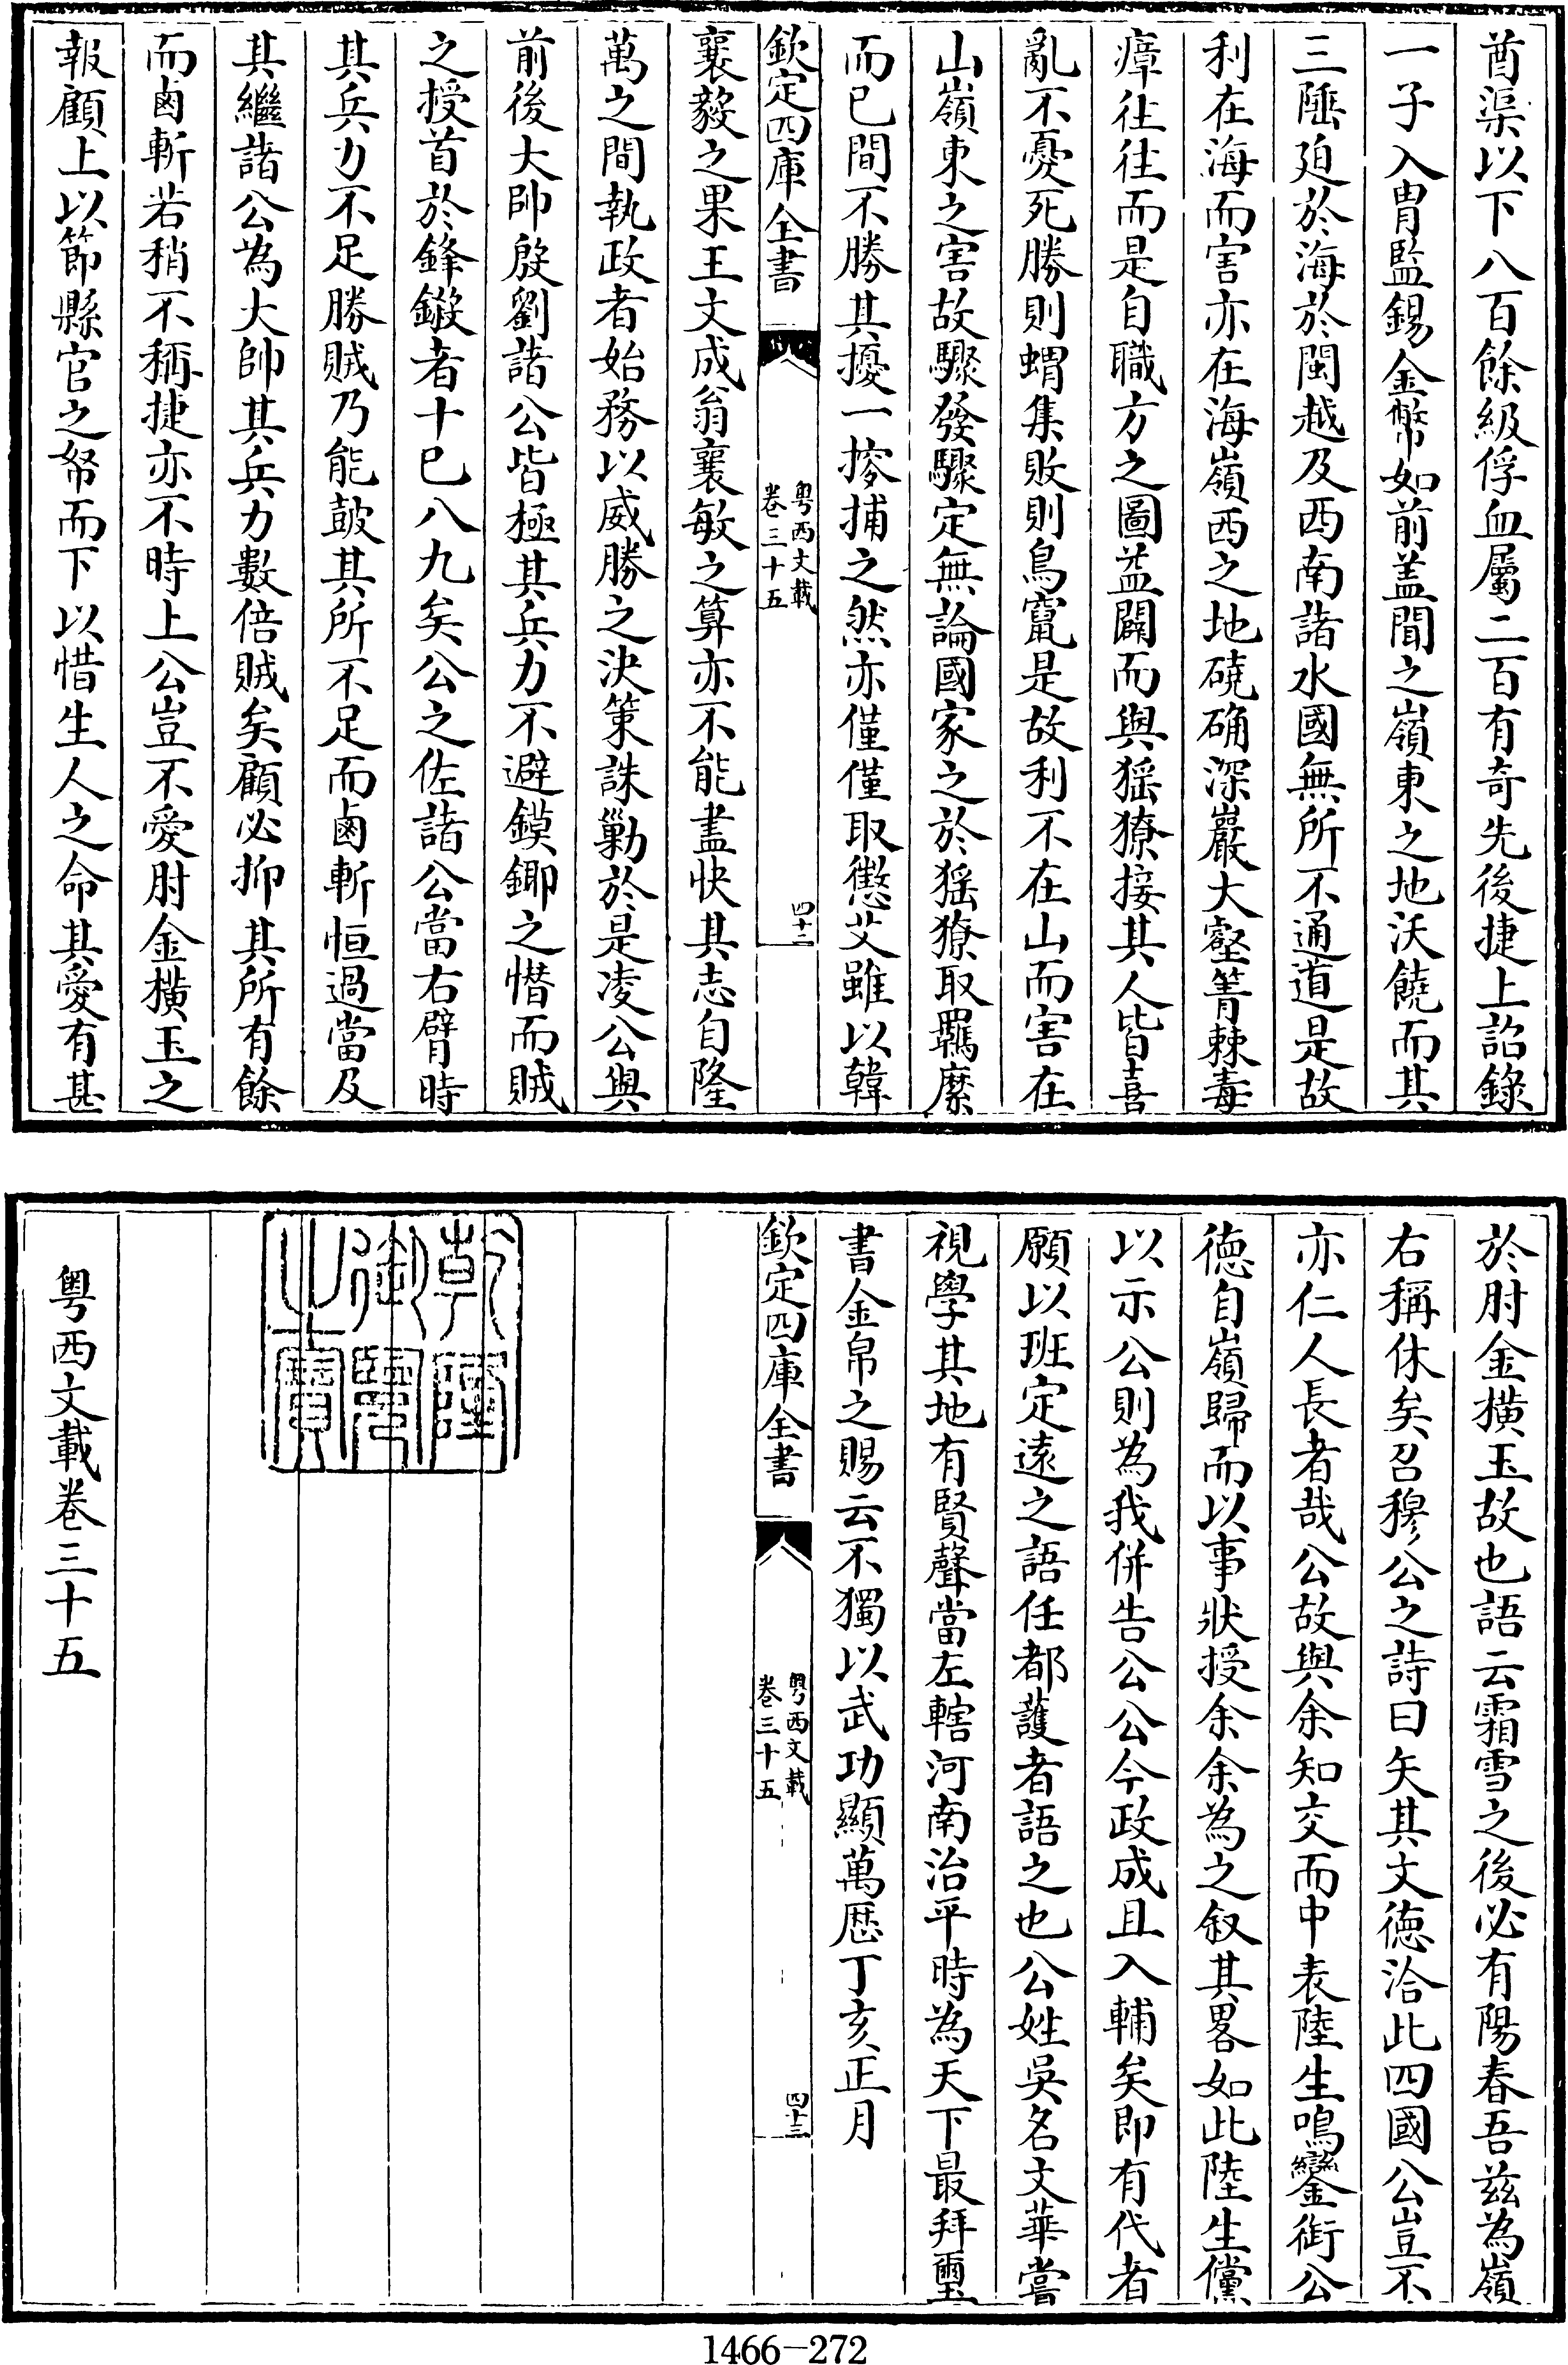 酋渠以下八百餘級俘血屬二百有奇先後捷上詔錄
一子入胄監錫金幣如前盖聞之嶺東之地沃饒而其
三陲廹於海於閩越及西南諸水國無所不通道是故
利在海而害亦在海嶺西之地磽确深巖大壑箐棘毒
瘴往往而是自職方之圖益闢而與猺獠接其人皆喜
亂不憂死勝則蝟集敗則鳥竄是故利不在山而害在
山嶺東之害故驟發驟定無論國家之於猺獠取羈縻
而已間不勝其擾一搜捕之然亦僅僅取懲艾雖以韓
欽定四庫全書
粤西文載
卷三十五
四十二
襄毅之果王文成翁襄敏之算亦不能盡快其志自隆
萬之間執政者始務以威勝之決策誅勦於是凌公與
前後大帥殷劉諸公皆極其兵力不避鏌鎁之憯而賊
之授首於鋒鏃者十巳八九矣公之佐諸公當右臂時
其兵力不足勝賊乃能鼓其所不足而鹵斬恒過當及
其繼諸公為大帥其兵力數倍賊矣顧必抑其所有餘
而鹵斬若稍不稱捷亦不時上公豈不愛肘金横玉之
報顧上以節縣官之帑而下以惜生人之命其愛有甚
於肘金横玉故也語云霜雪之後必有陽春吾兹為嶺
右稱休矣召穆公之詩曰矢其文徳洽此四國公豈不
亦仁人長者哉公故與余知交而中表陸生鳴鑾銜公
徳自嶺歸而以事狀授余余為之叙其畧如此陸生儻
以示公則為我併告公公今政成且入輔矣即有代者
願以班定遠之語任都護者語之也公姓吳名文華嘗
視學其地有賢聲當左轄河南治平時為天下最拜璽
書金帛之賜云不獨以武功顯萬厯丁亥正月
欽定四庫全書
粤西文載
卷三十五
四十三
乾隆
御覽
之寶
粤西文載卷三十五
1466-272